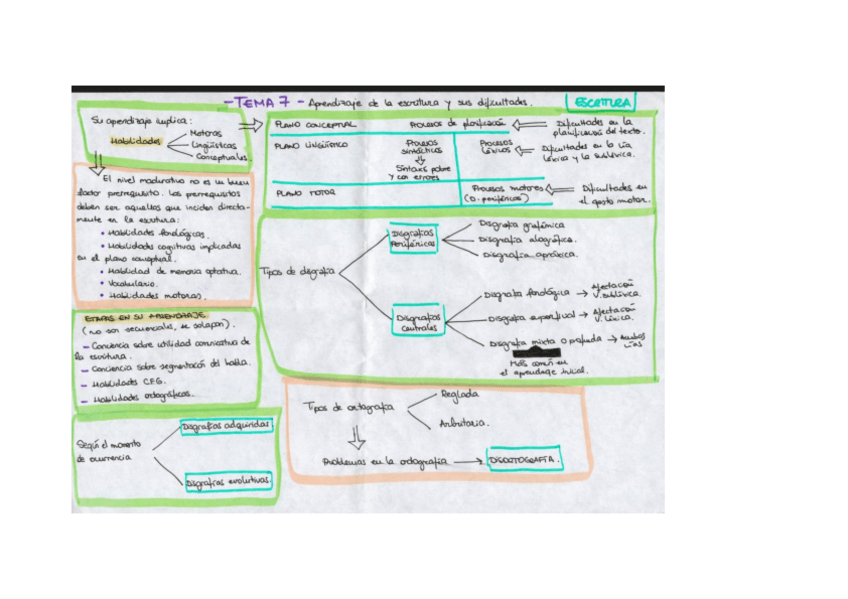 - TEMA 7 - Aprendizaje de la escritura y sus dificultades.
ESCRITURA
Su aprendizaje implica:
Habilidades
Motoras
Lingüísticas
Conceptuales.
El nivel madurativo no es un buen
factor prerrequisito. Los prerrequisitos
deben ser aquellos que inciden directa-
mente en la escritura:
• Habilidades fonológicas.
• Habilidades cognitivas implicadas
en el plano conceptual.
• Habilidad de memoria
• Vocabulario.
• Habilidades motoras.
ETAPAS EN SU APRENDIZAJE
(no son secuenciales, se solapan).
- Conciencia sobre utilidad comunicativa de
la escritura.
- Conciencia sobre segmentación del habla.
- Habilidades
- Habilidades ortográficas.
Según el momento
de ocurrencia
Disgrafías adquiridas
Disgrafías evolutivas.
PLANO CONCEPTUAL
Procesos de planificación
Dificultades en la
planificación del texto.
PLANO LINGÜÍSTICO
Procesos
sintácticos
Sintaxis pobre
y con errores
Procesos
léxicos
Dificultades en la vía
léxica y la subléxica.
PLANO MOTOR
Procesos motores
(D. periféricas)
Dificultades en
el gesto motor.
Tipos de disgrafía
Disgrafías
periféricas
Disgrafía grafémica
Disgrafía alográfica.
Disgrafía apráxica.
Disgrafías
centrales
Disgrafía fonológica → Afectación
V. subléxica.
Disgrafía superficial → Afectación
V. Léxica.
Disgrafía mixta o profunda → Ambas
vías
Más común en
el aprendizaje inicial.
Tipos de ortografía
Reglada
Arbitraria.
Problemas en la ortografía → DISORTOGRAFÍA.